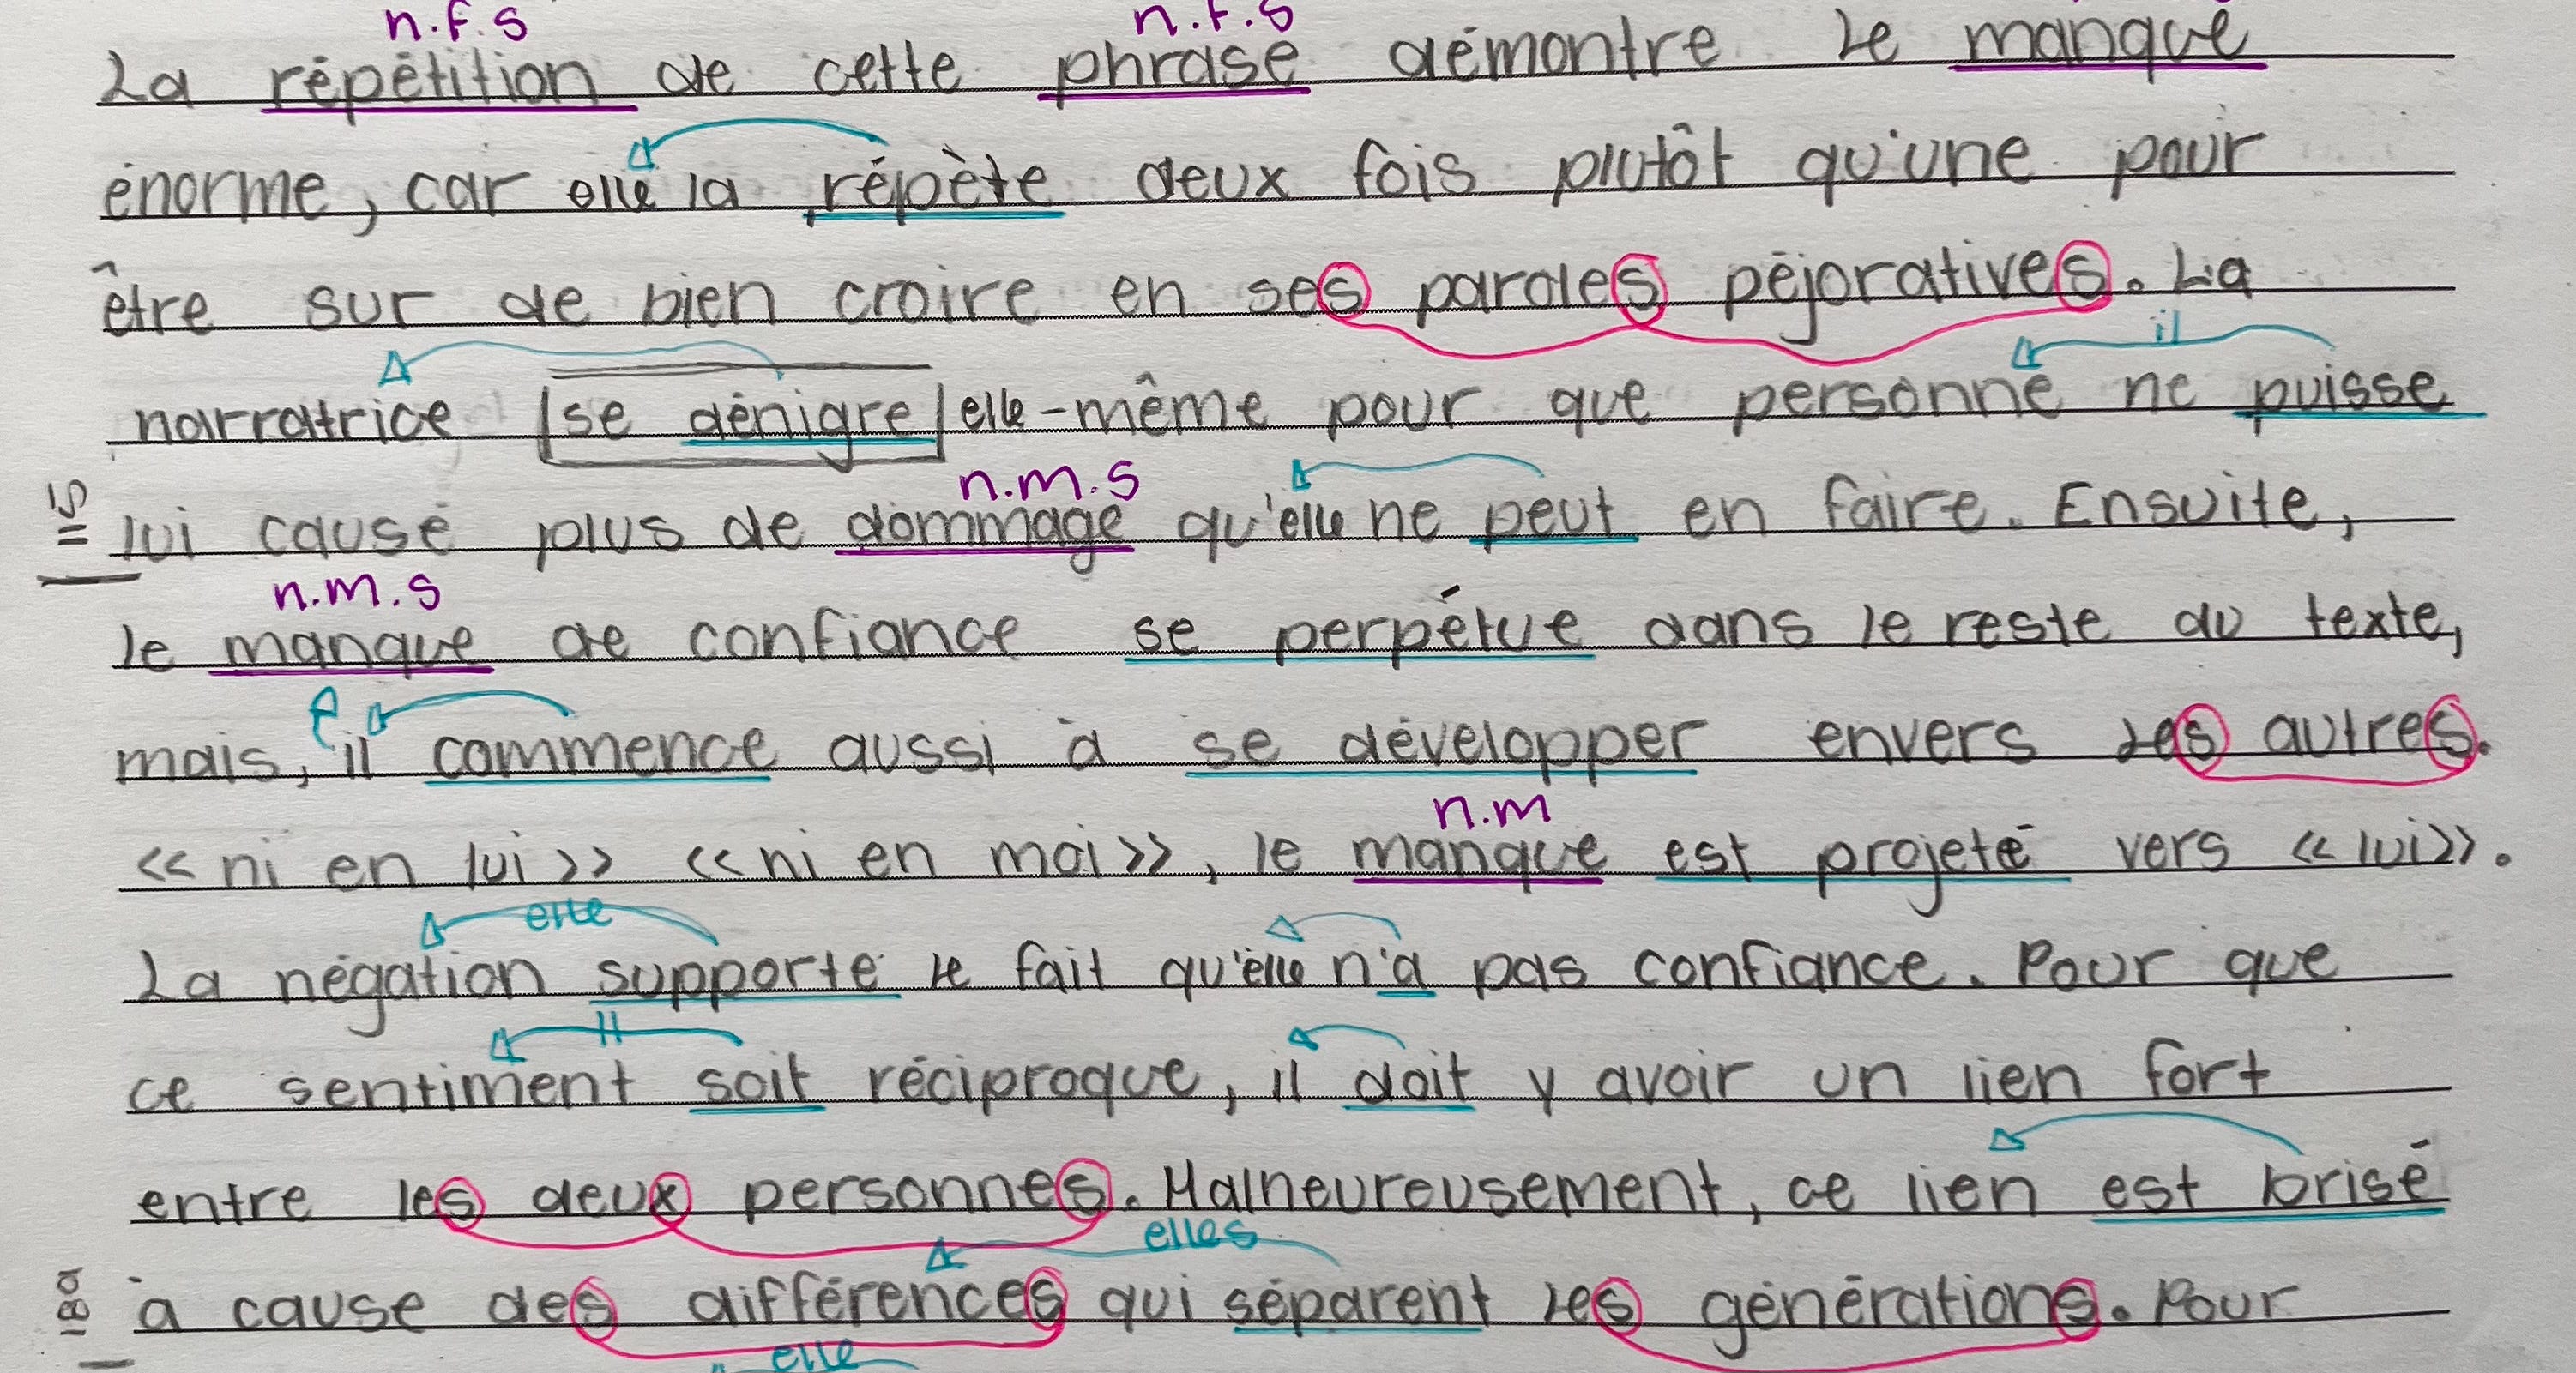 n.f.s n.f.s
La répétition de cette phrase démontre le manque
énorme, car elle la répète deux fois plutôt qu'une pour
être sur de bien croire en ses paroles péjoratives. La
il
narratrice se dénigre elle-même pour que personne ne puisse
n.m.s
115 lui causé plus de dommage qu'elle ne peut en faire. Ensuite,
n.m.s
le manque de confiance se perpétue dans le reste du texte,
mais, il commence aussi à se développer envers les autres.
n.m
<< ni en lui >> << ni en moi >>, le manque est projeté vers << lui >>.
elle
La négation supporte le fait qu'elle n'a pas confiance. Pour que
il
ce sentiment soit réciproque, il doit y avoir un lien fort
entre les deux personnes. Malheureusement, ce lien est brisé
elles
180 à cause des différences qui séparent les générations. Pour
elle